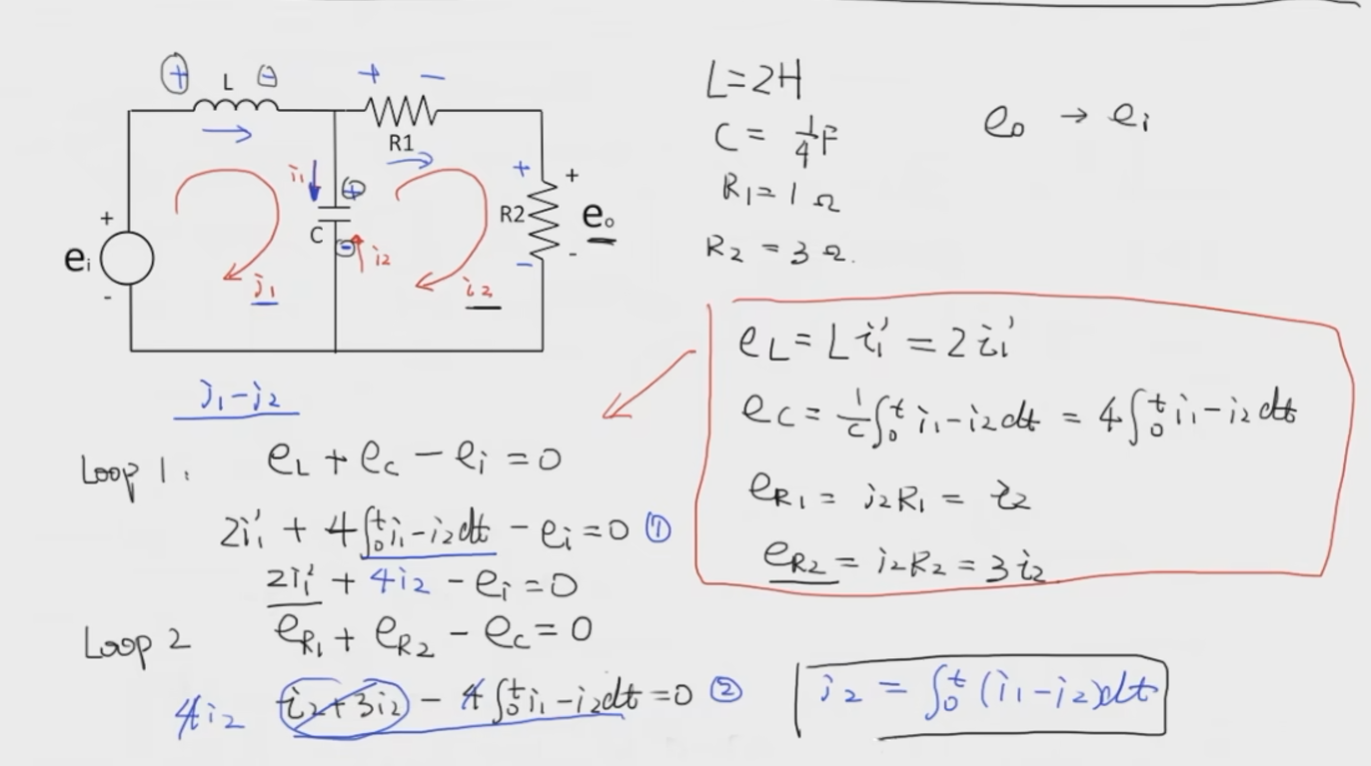 ⊕ L ⊖ + −
R1
i₁ ⊕
+ +
R2 eₒ
C ⊖ i₂
− -
+
eᵢ
-
i₁ i₂
i₁-i₂
L=2H
C = 1/4 F
R₁=1Ω
R₂ = 3Ω.
eₒ → eᵢ
e_L = L i₁' = 2i₁'
e_C = 1/C ∫₀ᵗ i₁-i₂dt = 4∫₀ᵗ i₁-i₂dt
e_R₁ = i₂R₁ = i₂
e_R₂ = i₂R₂ = 3i₂
Loop 1: e_L + e_C - eᵢ = 0
2i₁' + 4∫₀ᵗ i₁-i₂dt - eᵢ = 0 ①
2i₁' + 4i₂ - eᵢ = 0
Loop 2 e_R₁ + e_R₂ - e_C = 0
4i₂ i₂+3i₂ - 4∫₀ᵗ i₁-i₂dt = 0 ②
i₂ = ∫₀ᵗ (i₁-i₂)dt